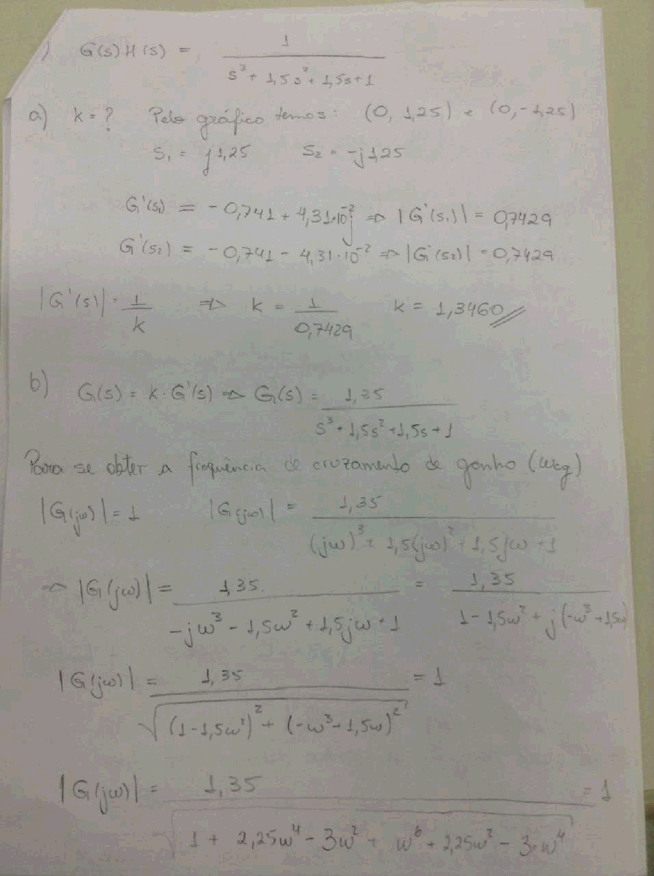 ) G(s)H(s) = 1 / (s³ + 1,5s² + 1,5s + 1)
a) k = ? Pelo gráfico temos: (0, 1,25) e (0, -1,25)
S₁ = j1,25 S₂ = -j1,25
G'(s₁) = -0,741 + 4,31·10⁻²j ⇒ |G'(s₁)| = 0,7429
G'(s₂) = -0,741 - 4,31·10⁻² ⇒ |G'(s₂)| = 0,7429
|G'(s)| = 1/k ⇒ k = 1/0,7429 k = 1,3460
b) G(s) = k·G'(s) ⇒ G(s) = 1,35 / (s³ + 1,5s² + 1,5s + 1)
Para se obter a frequência de cruzamento de ganho (wcg)
|G(jω)| = 1 |G(jω)| = 1,35 / ((jω)³ + 1,5(jω)² + 1,5jω + 1)
⇒ |G(jω)| = 1,35 / (-jω³ - 1,5ω² + 1,5jω + 1) = 1,35 / (1 - 1,5ω² + j(-ω³ + 1,5ω)
|G(jω)| = 1,35 / √((1 - 1,5ω²)² + (-ω³ + 1,5ω)²) = 1
|G(jω)| = 1,35 / √(1 + 2,25ω⁴ - 3ω² + ω⁶ + 2,25ω² - 3ω⁴) = 1